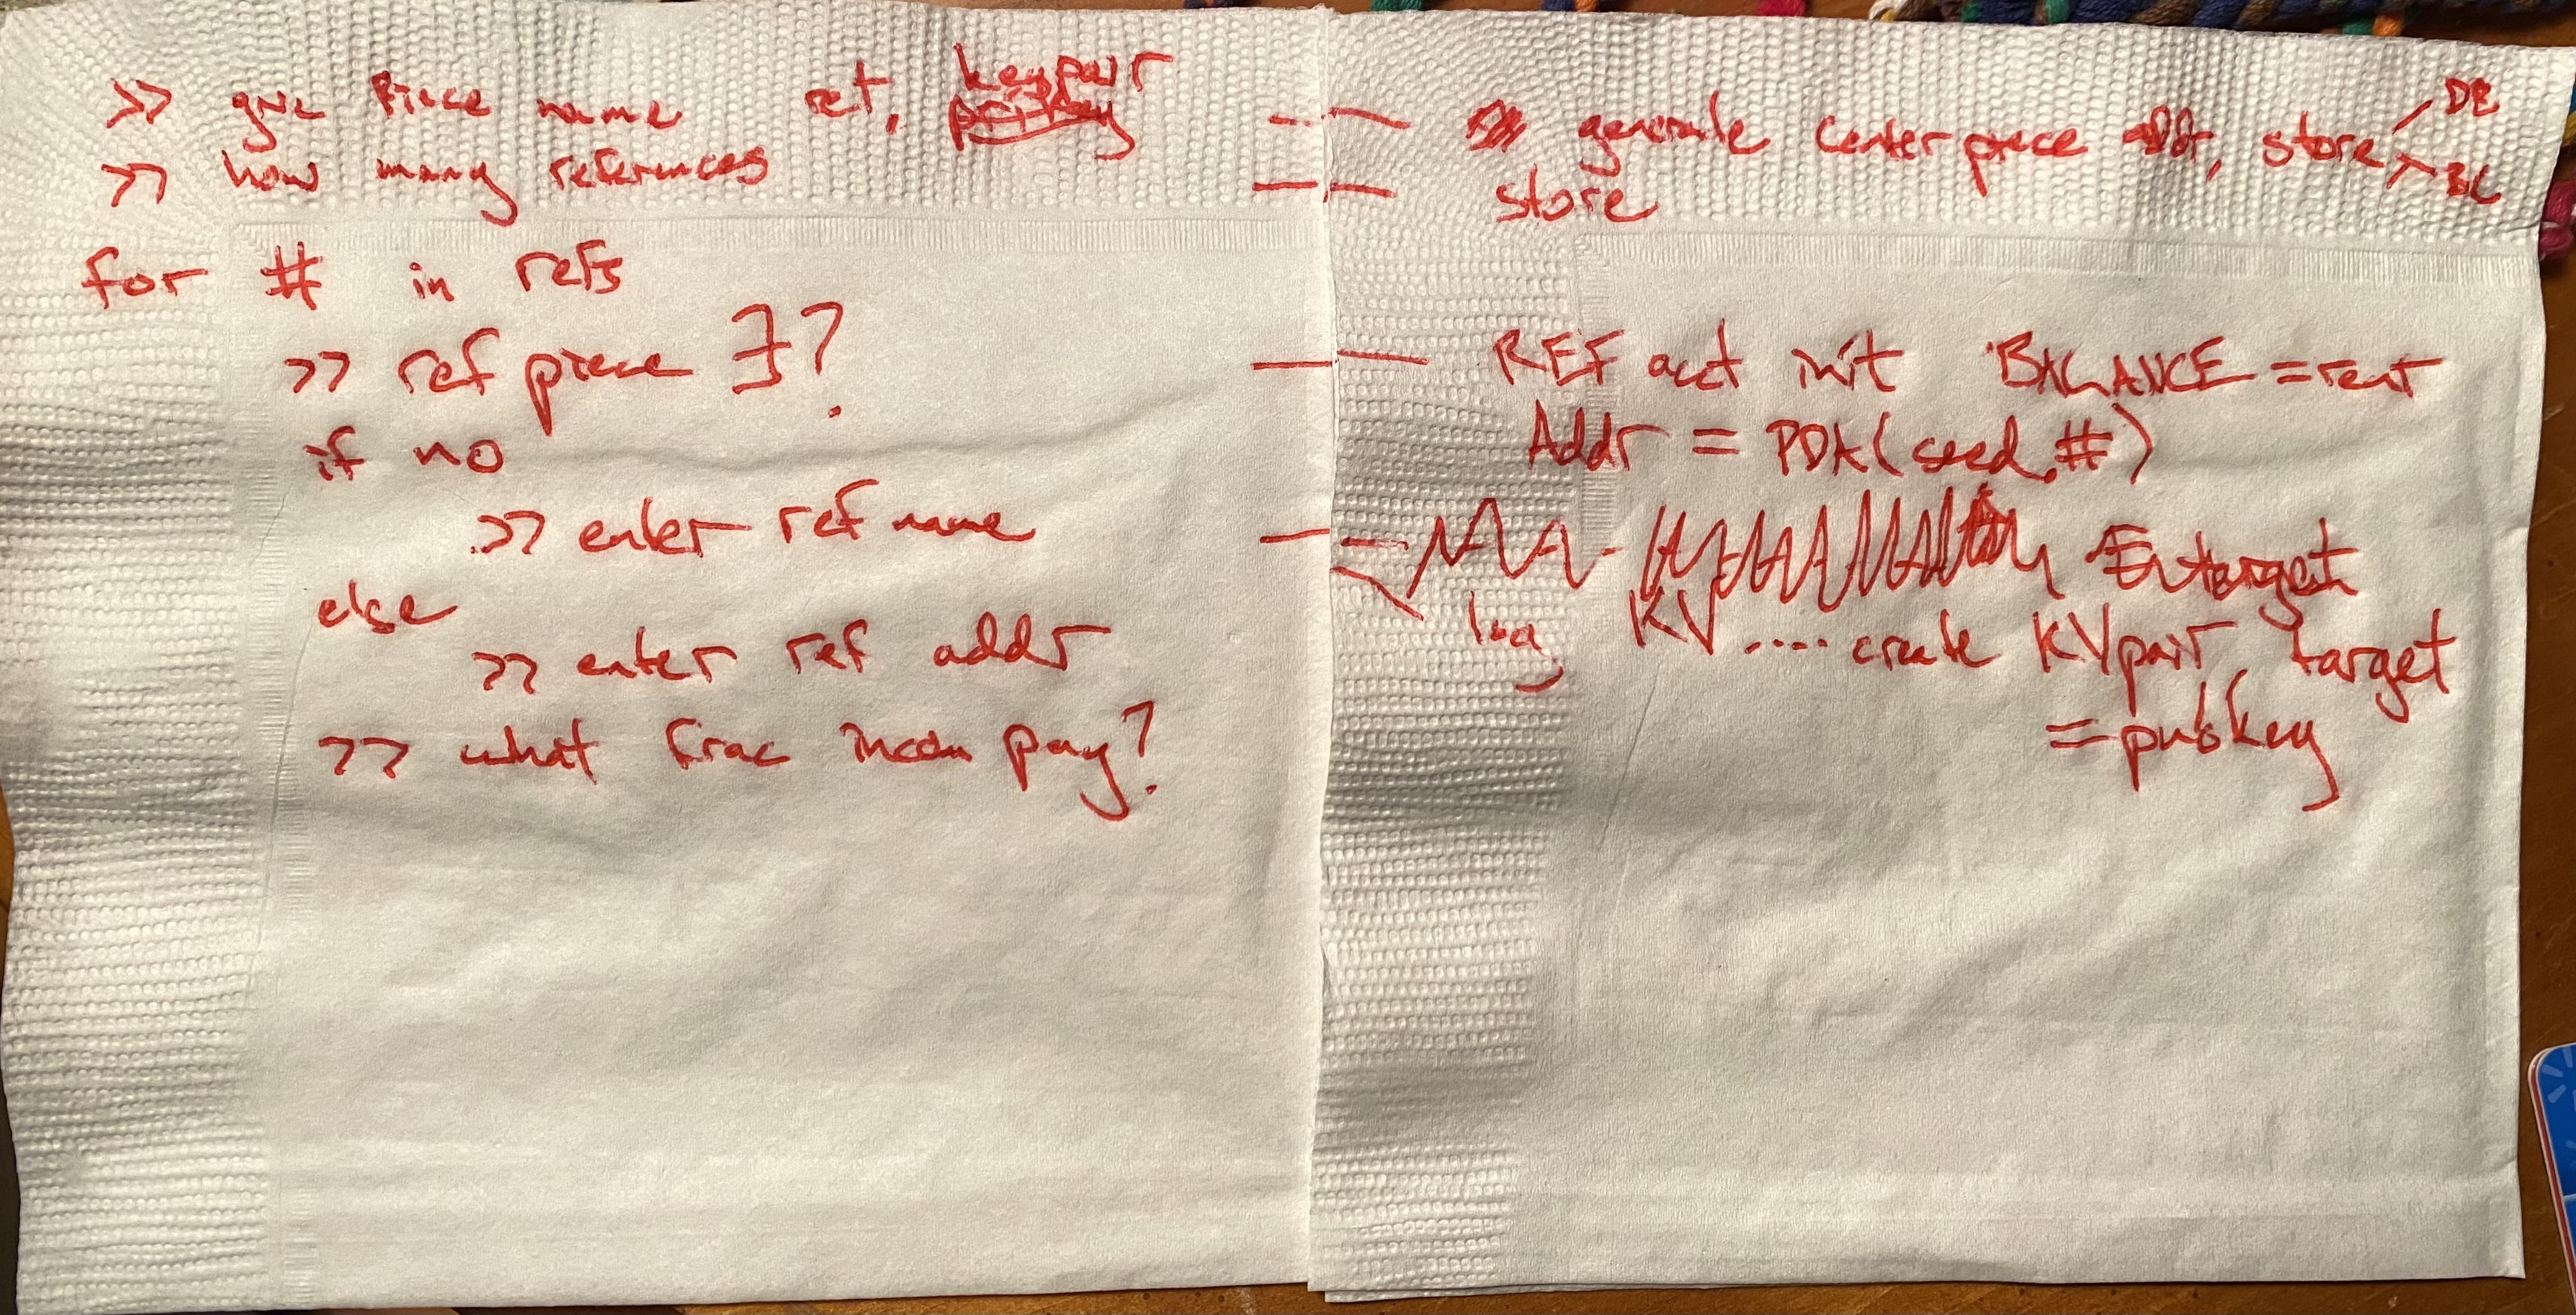 >> give Piece name ret, keypair
>> how many references
for # in refs
>> ref piece ∃?
if no
>> enter ref name
else
>> enter ref addr
>> what frac incom pay?
generate Center piece addr, store DB
BC
store
REF acct init BALANCE = rent
Addr = PDA(seed, #)
log KV .... create KV pair, target
= pubkey